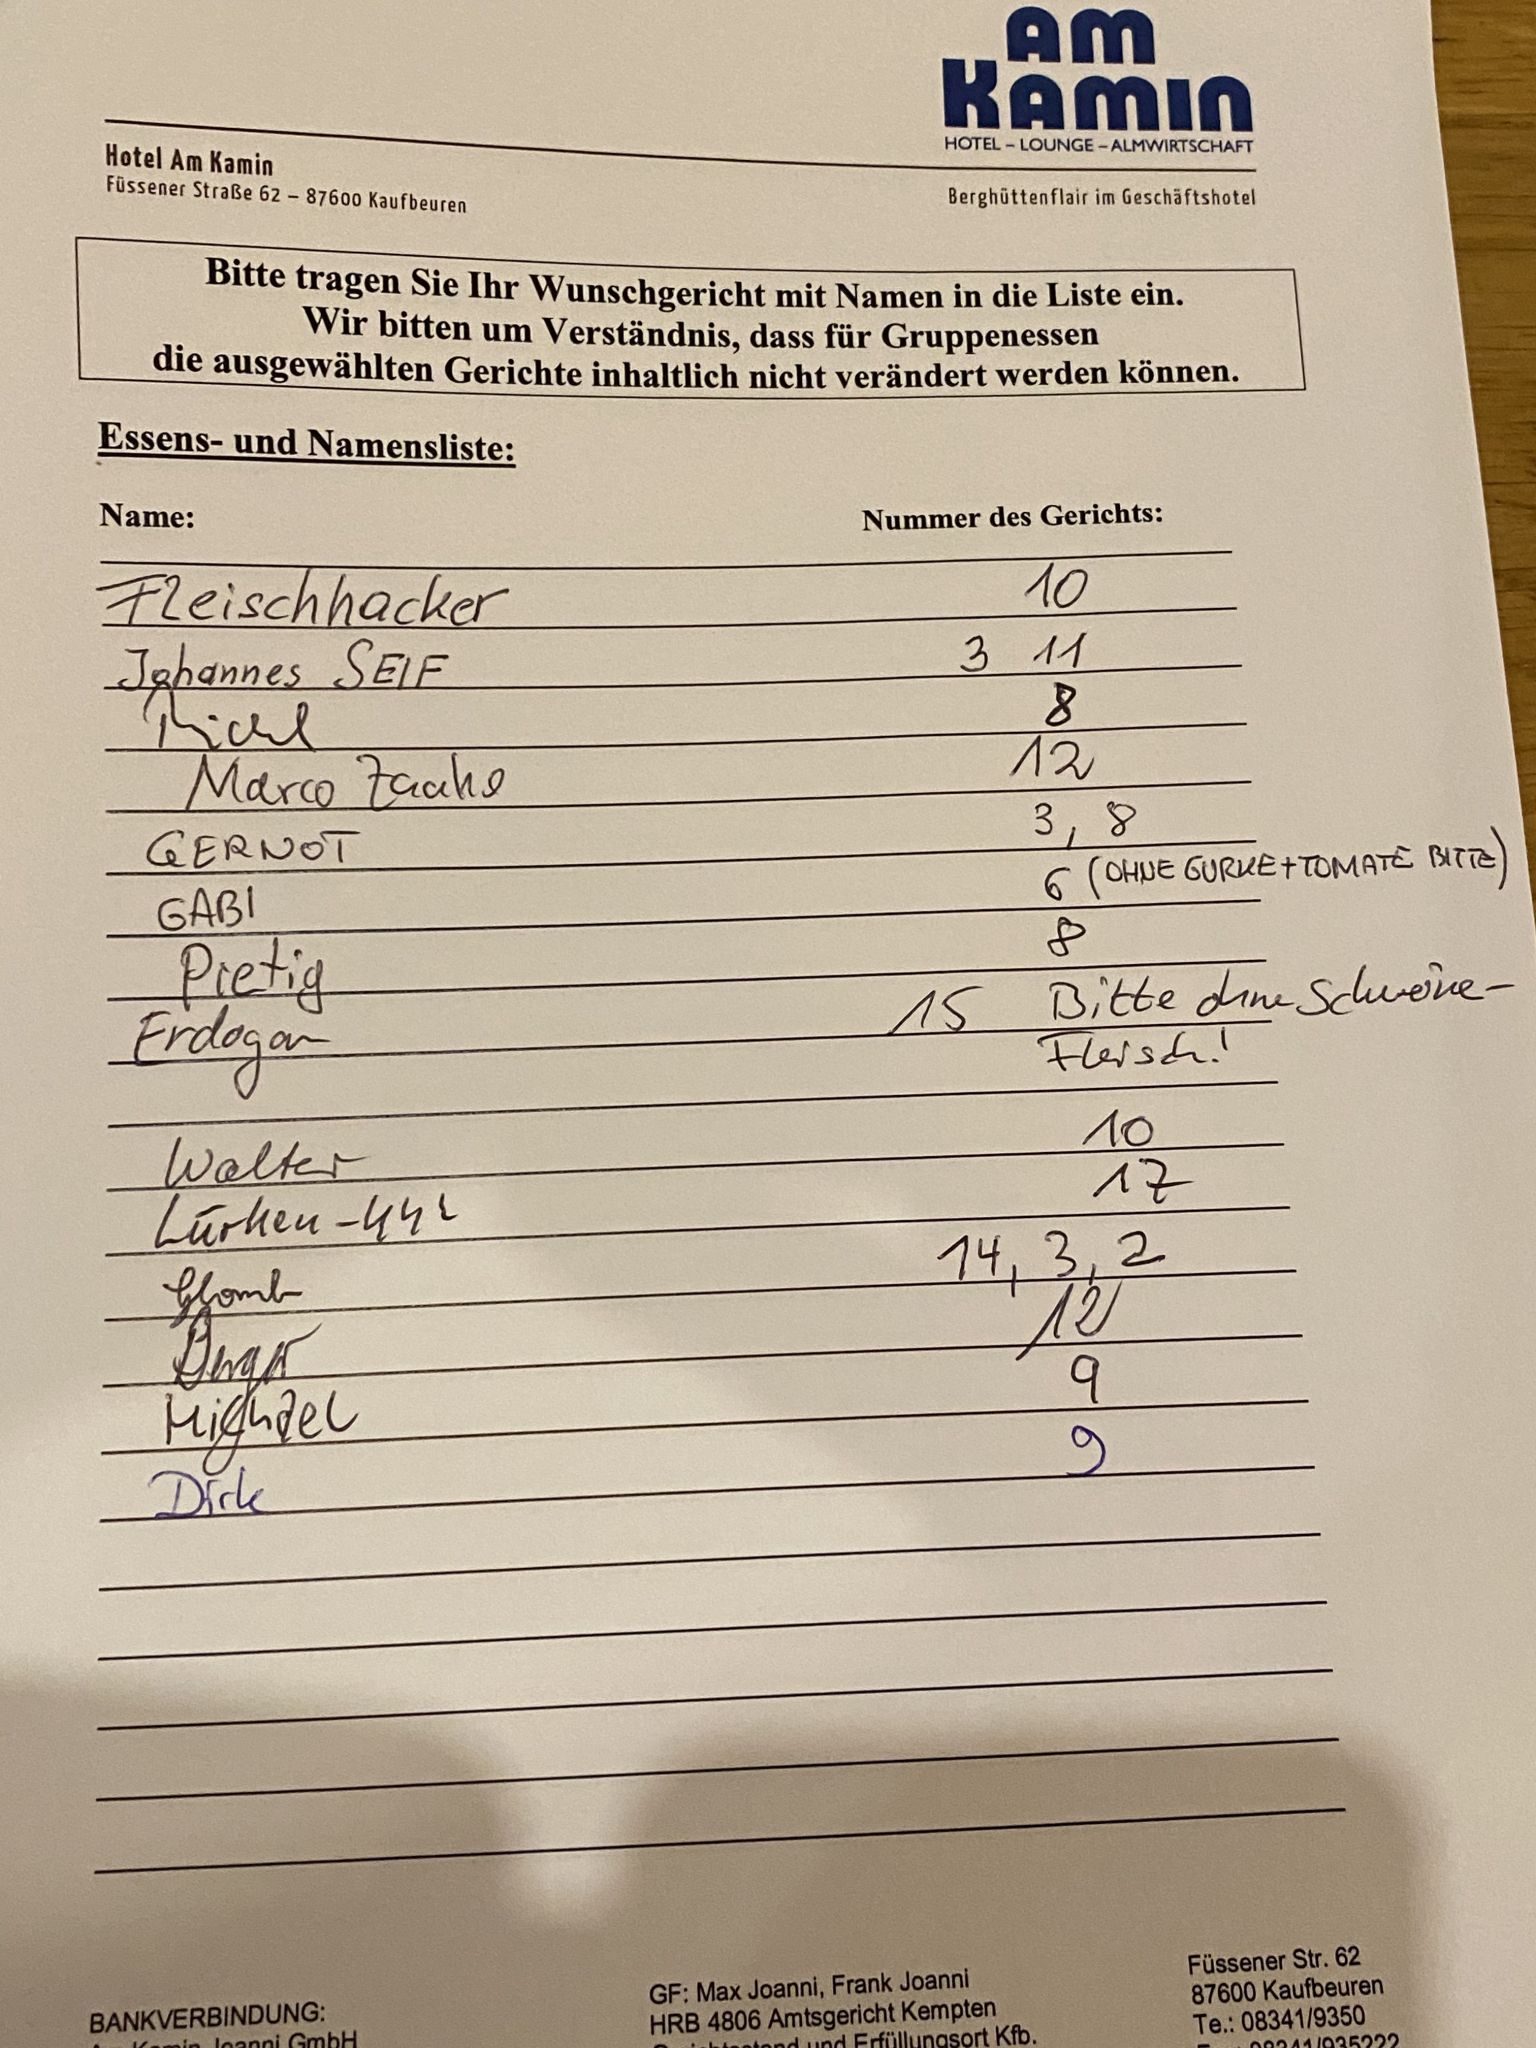 AM
KAMIN
HOTEL – LOUNGE – ALMWIRTSCHAFT
Hotel Am Kamin
Füssener Straße 62 – 87600 Kaufbeuren
Berghüttenflair im Geschäftshotel
Bitte tragen Sie Ihr Wunschgericht mit Namen in die Liste ein.
Wir bitten um Verständnis, dass für Gruppenessen
die ausgewählten Gerichte inhaltlich nicht verändert werden können.
Essens- und Namensliste:
Name: Nummer des Gerichts:
Fleischhacker 10
Johannes SEIF 3 11
8
Marco 12
GERNOT 3, 8
GABI 6 (OHNE GURKE + TOMATE BITTE)
Pietig 8
Erdogan 15 Bitte ohne Schweine-
Fleisch!
Walter 10
17
14, 3, 2
12
Michael 9
Dirk 9
BANKVERBINDUNG:
Am Kamin Joanni GmbH
GF: Max Joanni, Frank Joanni
HRB 4806 Amtsgericht Kempten
Gerichtsstand und Erfüllungsort Kfb.
Füssener Str. 62
87600 Kaufbeuren
Te.: 08341/9350
08341/935222